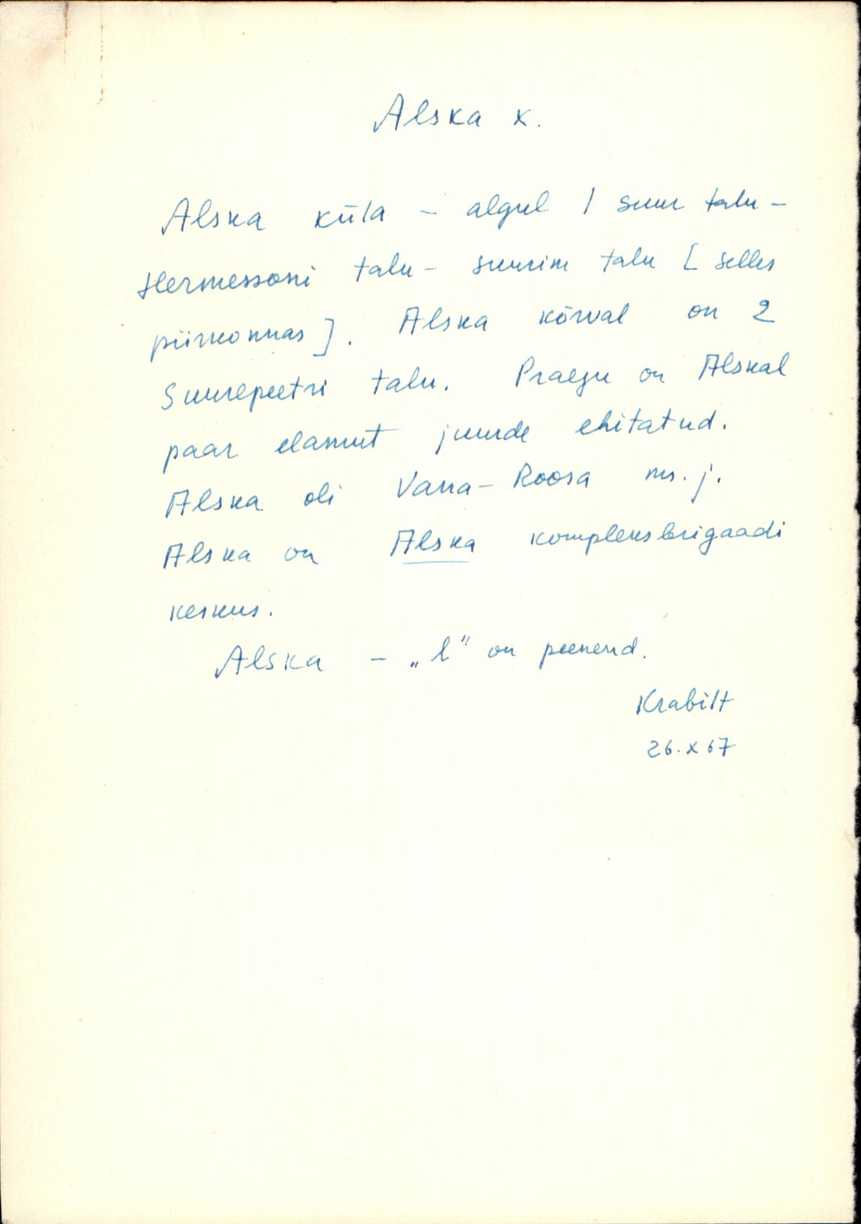 Alska k.
Alska küla - algul 1 suur talu -
Hermessoni talu - suurim talu [selles
piirkonnas]. Alska kõrval on 2
Suurepeetri talu. Praegu on Alskal
paar elamut juurde ehitatud.
Alska oli Vana-Roosa ms. j.
Alska on Alska kompleksbrigaadi
keskus.
Alska - „l" on peenend.
Krabilt
26.X 67